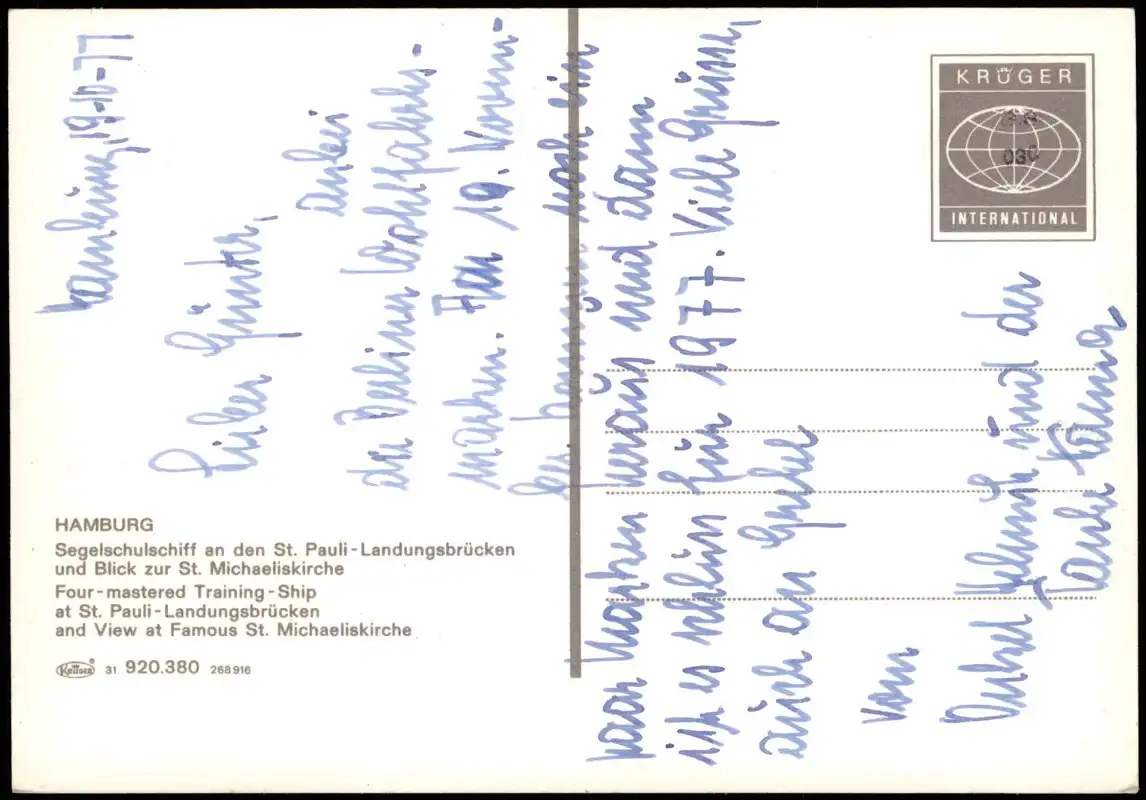 Hamburg, 19-10-77
Lieber Günter,
anbei
die Berliner Wohlfahrts-
marken. Am 10. Novem-
ber kommen noch ein
paar Marken heraus und dann
ist es schluß für 1977. Viele Grüsse,
auch an Gretel
vom
Onkel Helmut und der
Tante Hanna
HAMBURG
Segelschulschiff an den St. Pauli-Landungsbrücken
und Blick zur St. Michaeliskirche
Four-mastered Training-Ship
at St. Pauli-Landungsbrücken
and View at Famous St. Michaeliskirche
KRÜGER 31 920.380 268916
KRÜGER
030
INTERNATIONAL